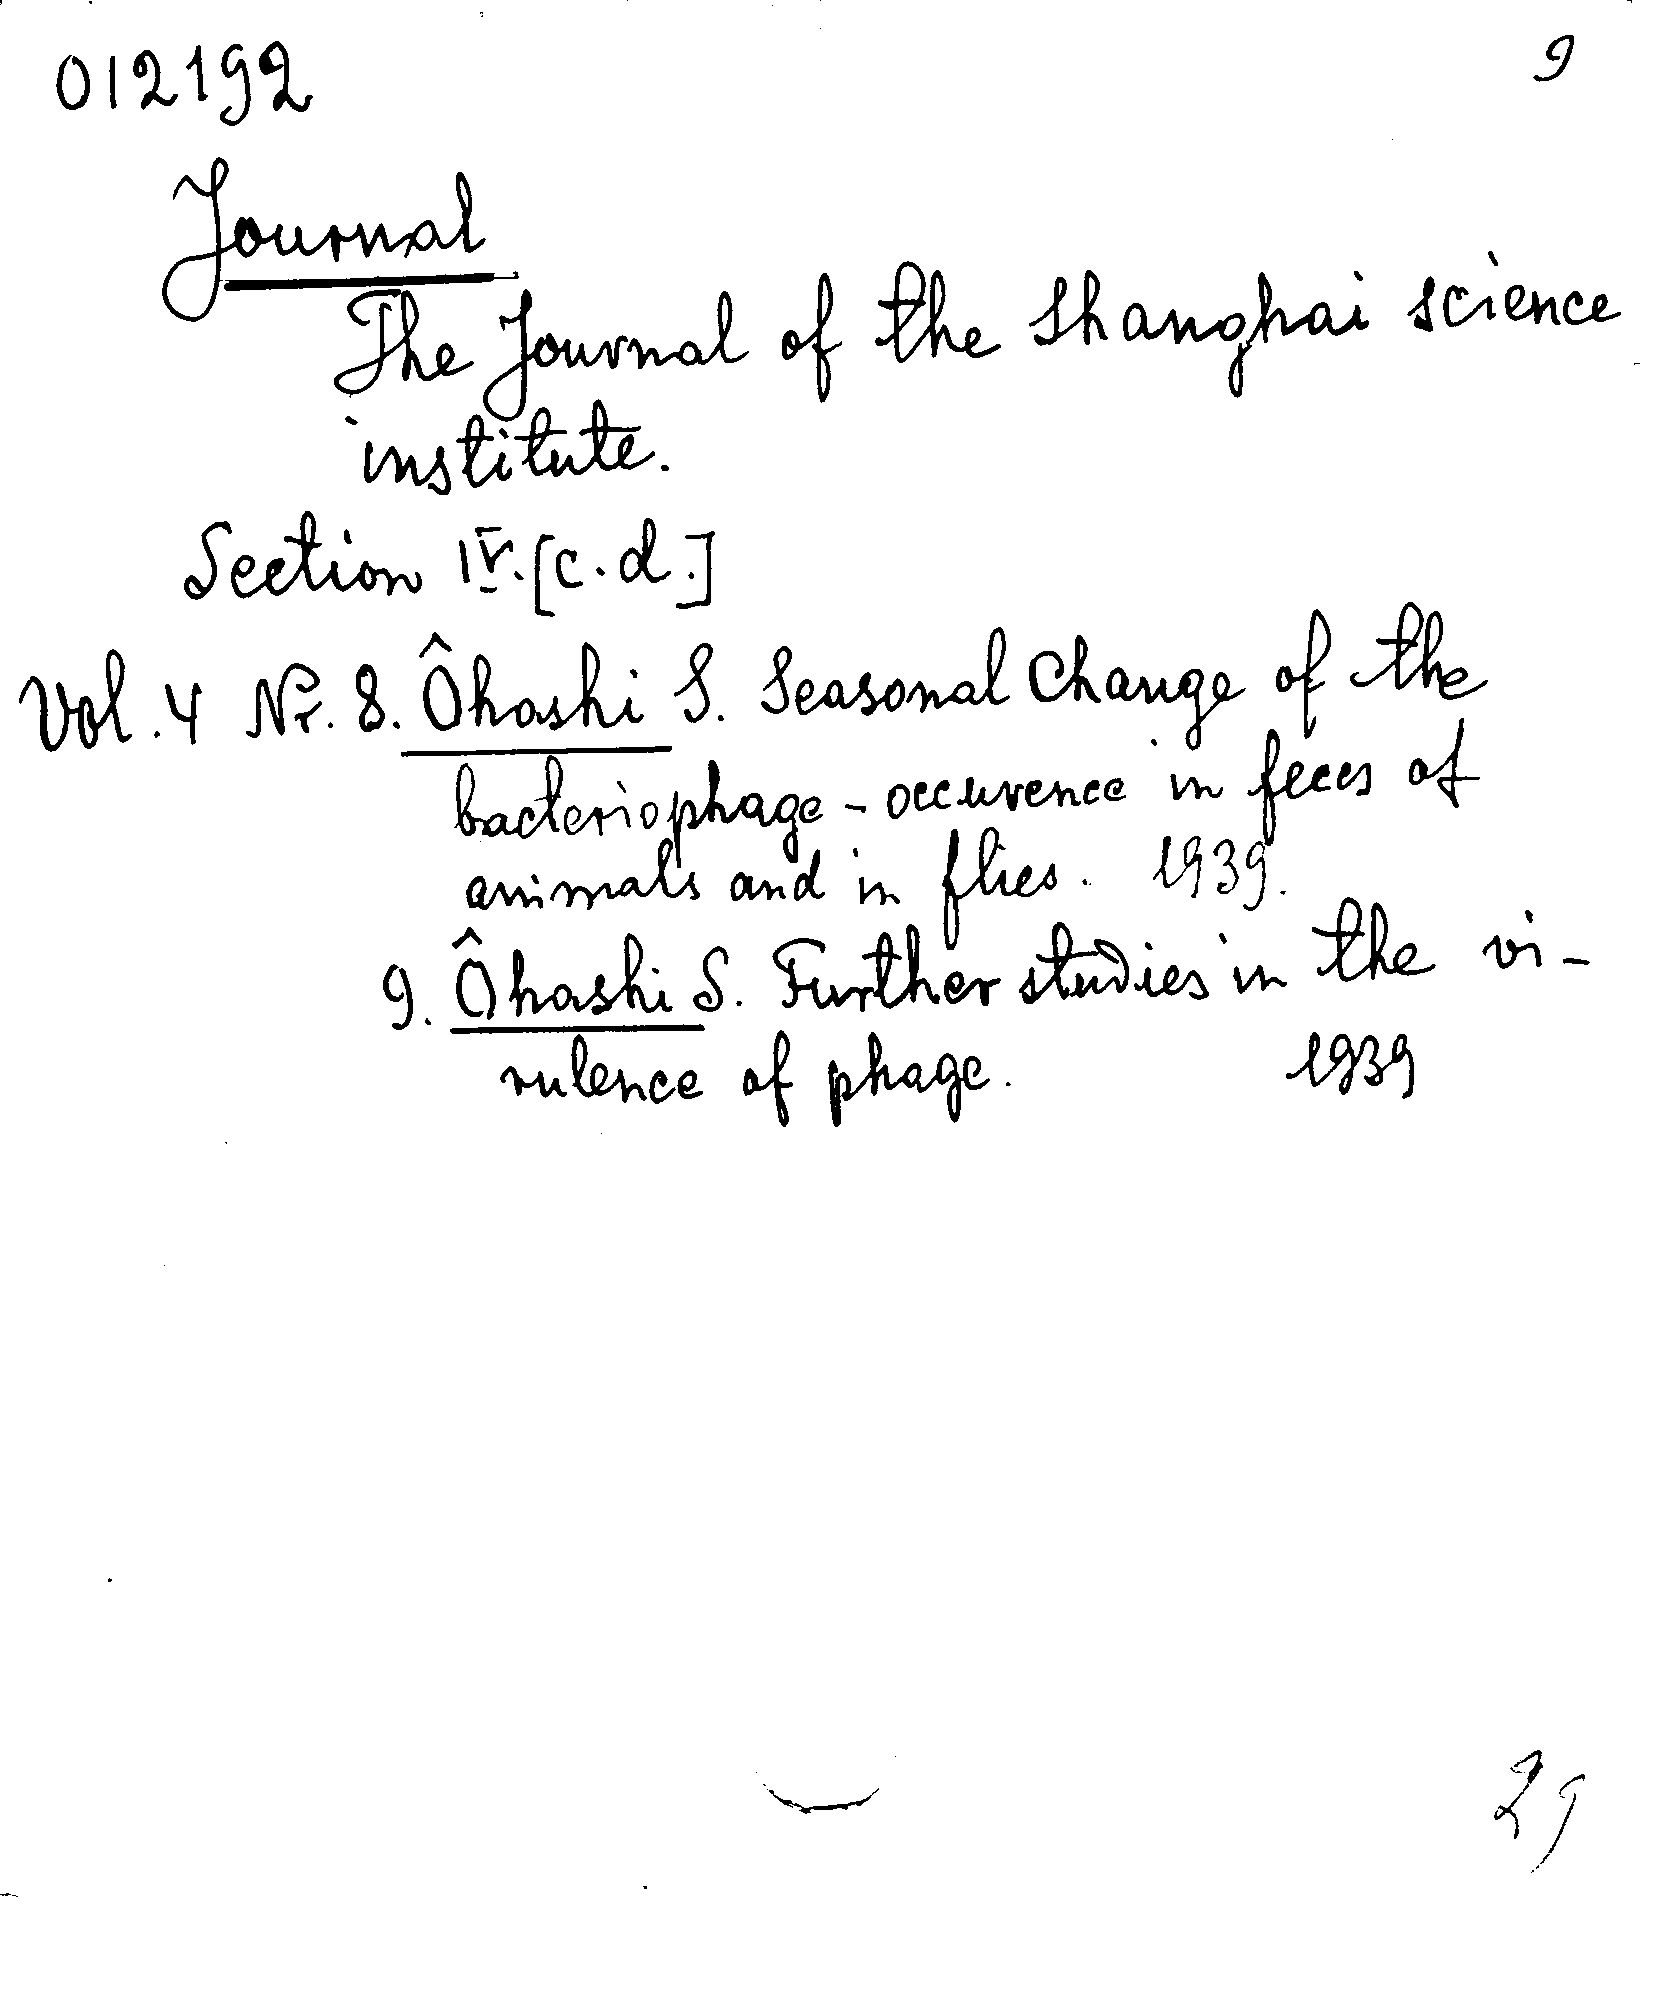 012192 9
Journal
The Journal of the Shanghai science
institute.
Section IV. [c.d.]
Vol. 4 Nr. 8. Ôhashi S. Seasonal Change of the
bacteriophage - occurence in feces of
animals and in flies. 1939.
9. Ôhashi S. Further studies in the vi-
rulence of phage. 1939
29